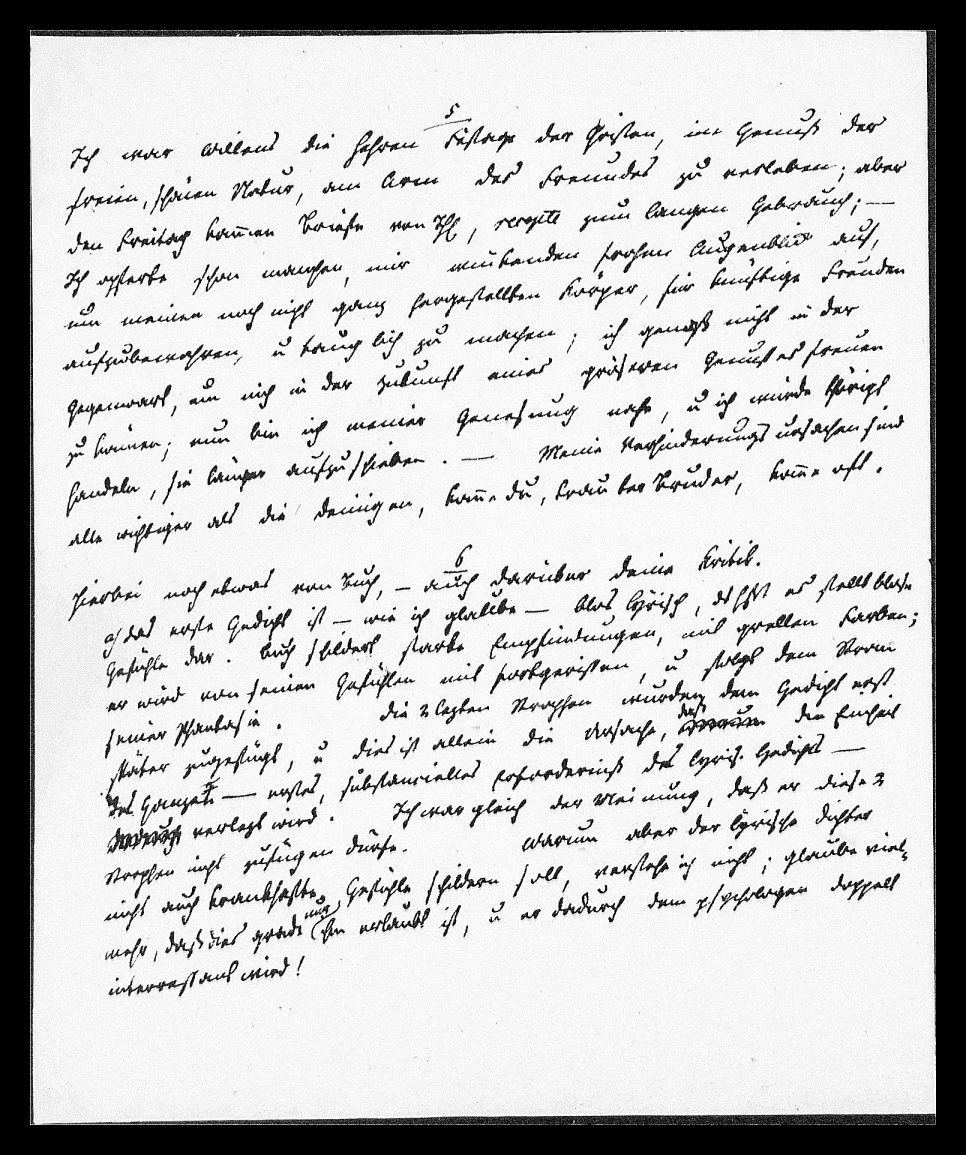 5
Ich war willens die hehren Festage der Christen, im Genuß der
freien, schönen Natur, am Arm des Freundes zu verleben; aber
den Freitag kamen Briefe von recepte zum langen Gebrauch; —
Ich opferte schon manchen, mir winkenden frohen Augenblick auf,
um meinen noch nicht ganz hergestellten Körper, für künftige Freuden
aufzubewahren, u tauglich zu machen; ich genoß nicht in der
Gegenwart, um mich in der Zukunft eines gröseren Genusses freuen
zu können; nun bin ich meiner Genesung nahe, u ich würde thörigt
handeln, sie länger aufzuschieben. — Meine Verhinderungsursachen sind
alle wichtiger als die deinigen, kome du, trauter Bruder, kome oft.
6
Hierbei noch etwas von Buch, — auch darüber deine Kritik.
a) das erste Gedicht ist — wie ich glaube — blos lyrisch, es stellt blose
Gefühle dar. Buch schildert starke Empfindungen, mit grellen Farben;
er wird von seinen Gefühlen mit fortgerissen, u folgt dem Strom
seiner Phantasie. die 2 lezten Strophen wurden dem Gedicht erst
später zugefügt, u dies ist allein die Ursache, daß die Einheit
des Ganzen — erstes, substancielles Erforderniß des lyris. Gedichts —
verlezt wird. Ich war gleich der Meinung, daß er diese 2
Strophen nicht zufügen dürfe. Warum aber der lyrische Dichter
nicht auch krankhafte Gefühle schildern soll, verstehe ich nicht; glaube viel=
mehr, daß dies grade nur ihm erlaubt ist, u er dadurch dem psychologen doppelt
interressant wird!